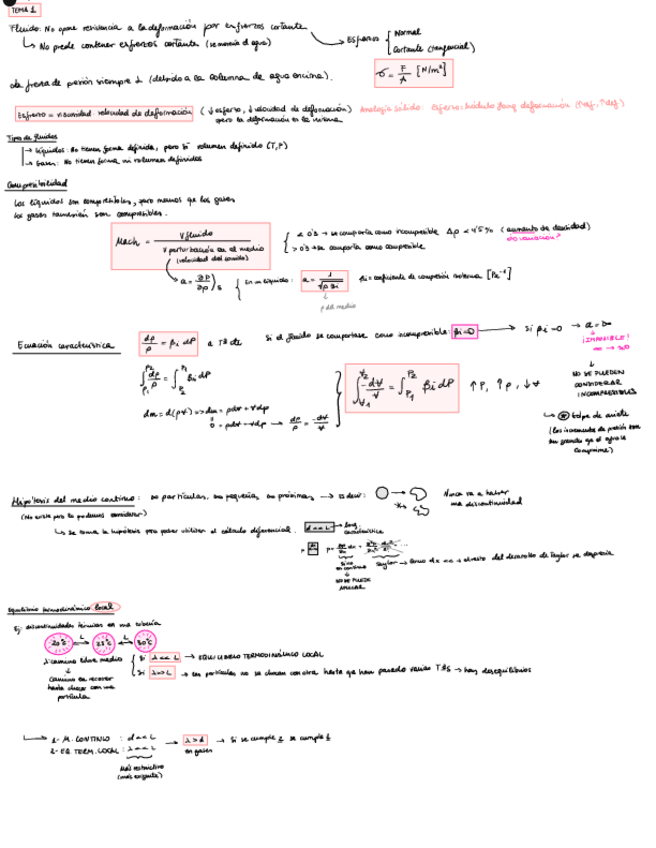 TEMA 1
Fluido: No opone resistencia a la deformación por esfuerzos cortante
↳ No puede contener esfuerzos cortante (se movería el agua) → Esfuerzos { Normal
Cortante (tangencial)
σ = F/A [N/m²]
de presión siempre ⊥ (debido a la columna de agua encima).
Esfuerzo = viscosidad · velocidad de deformación (↓ esfuerzo, ↓ velocidad de deformación) Analogía sólido: Esfuerzo: módulo Young deformación
pero la deformación es la misma
Tipos de fluidos
→ Líquidos: No tienen forma definida, pero sí volumen definido (T,P)
→ Gases: No tienen forma ni volumen definidos
Compresibilidad
Los líquidos son compresibles, pero menos que los gases
los gases también son compresibles.
Mach = V fluido / V perturbación en el medio (velocidad del sonido)
< 0'3 → se comporta como incompresible Δρ < 4'5% (aumento de densidad)
> 0'3 → se comporta como compresible
a = ∂P/∂ρ)s { En un líquido: a = 1/√ρ βi βi = coeficiente de compresión isoterma [Pa⁻¹]
ρ del medio
Ecuación característica dρ/ρ = βi dP a Tª cte Si el fluido se comportase como incompresible: βi=0 → Si βi=0 → a = ∞
¡IMPOSIBLE!
NO SE PUEDEN
CONSIDERAR
INCOMPRESIBLES
dm = d(ρ∀) => dm = ρd∀ + ∀dρ
0 = ρd∀ + ∀dρ → dρ/ρ = -d∀/∀
↑P, ↑ρ, ↓∀
↳ Golpe de ariete
(Los incrementos de presión son
tan grandes que el agua se
comprime)
Hipótesis del medio continuo: ∞ partículas, ∞ pequeñas, ∞ próximas → es decir: Nunca va a haber
una discontinuidad
(No existe pero la podemos considerar)
↳ Se toma la hipótesis para poder utilizar el cálculo diferencial. d <<< L → long.
característica
Si no
es continuo
NO SE PUEDE
APLICAR
Taylor → como dx <<< → el resto del desarrollo de Taylor se desprecia
Equilibrio termodinámico local
Ej: discontinuidades térmicas en una tubería
20°C L 25°C L 30°C
λ camino libre medio
Camino a recorrer
hasta chocar con una
partícula
Si λ <<< L → EQUILIBRIO TERMODINÁMICO LOCAL
Si λ >> L → las partículas no se chocan con otra hasta que han pasado varias TªS → hay desequilibrios
1- M. CONTINUO : d <<< L
2- EQ. TERM. LOCAL : λ <<< L → λ > d → Si se cumple 2 se cumple 1
en gases
Más restrictivo
(más exigente)